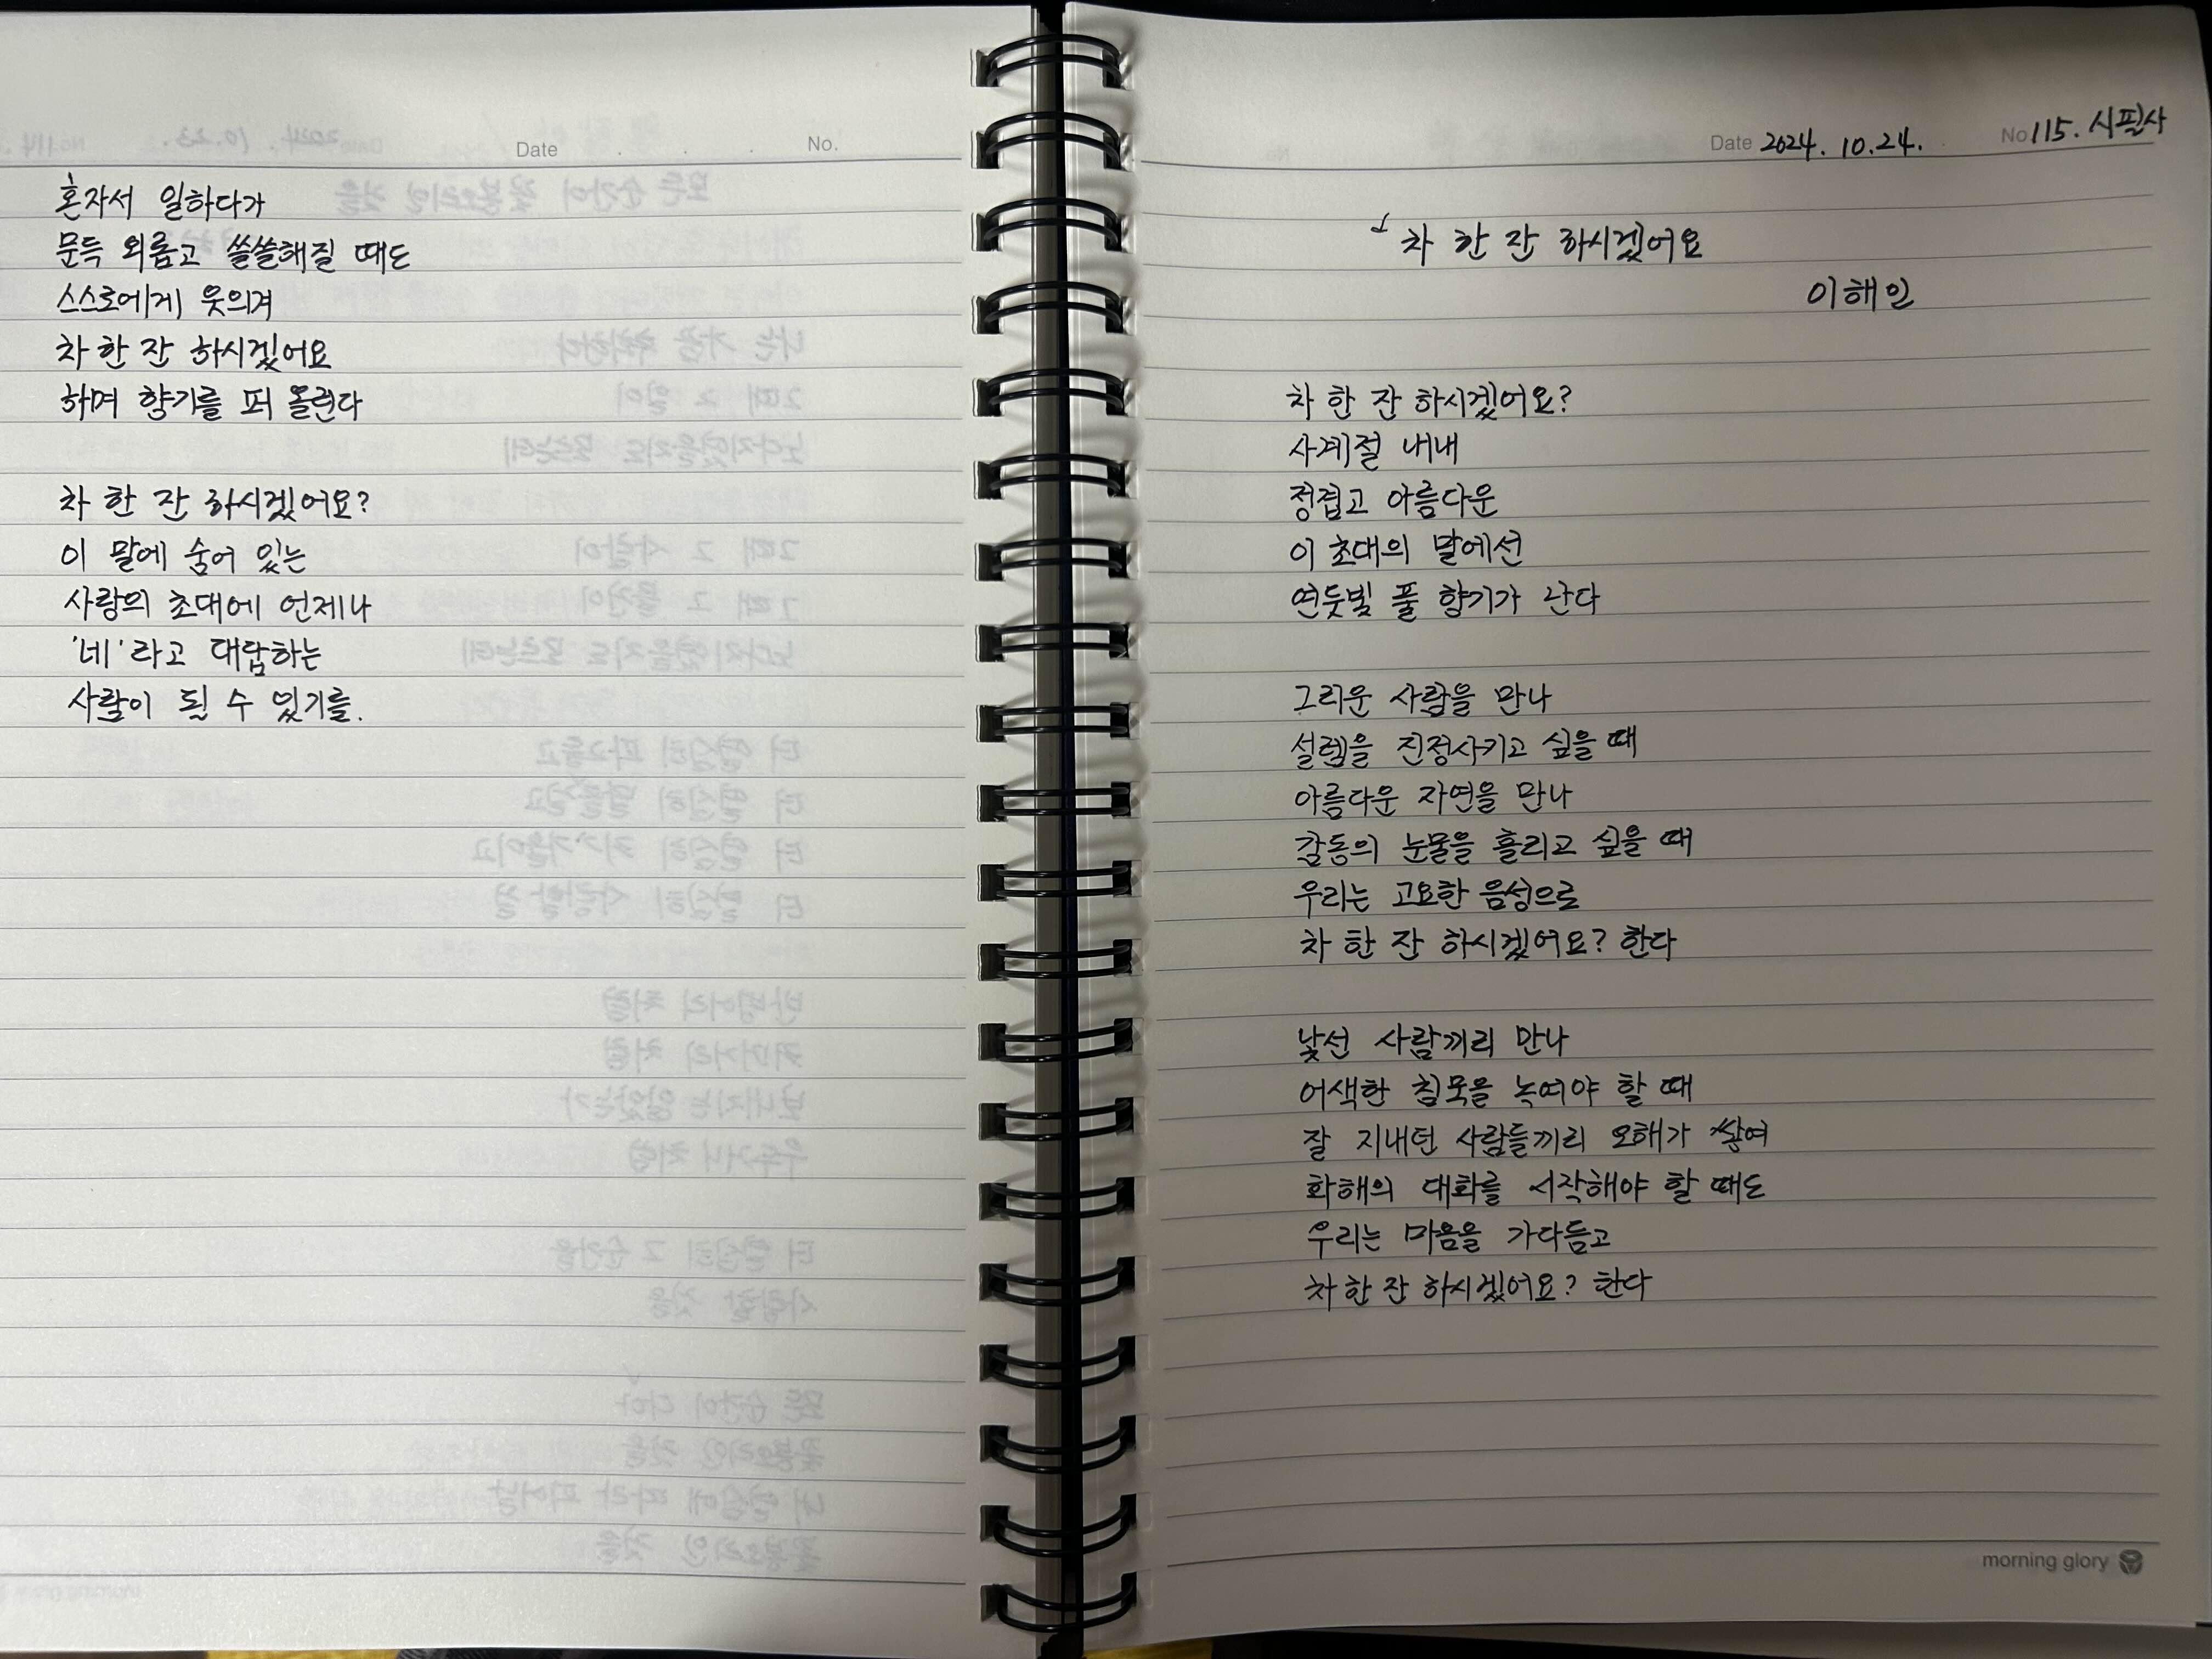 Date . . . No.
혼자서 일하다가
문득 외롭고 쓸쓸해질 때도
스스로에게 웃의겨
차 한 잔 하시겠어요
하며 향기를 퍼 올린다
차 한 잔 하시겠어요?
이 말에 숨어 있는
사랑의 초대에 언제나
'네'라고 대답하는
사람이 될 수 있기를.
Date 2024. 10. 24. No 115. 시필사
차 한 잔 하시겠어요
이해인
차 한 잔 하시겠어요?
사계절 내내
정겹고 아름다운
이 초대의 말에선
연둣빛 풀 향기가 난다
그리운 사람을 만나
설렘을 진정시키고 싶을 때
아름다운 자연을 만나
감동의 눈물을 흘리고 싶을 때
우리는 고요한 음성으로
차 한 잔 하시겠어요? 한다
낯선 사람끼리 만나
어색한 침묵을 녹여야 할 때
잘 지내던 사람들끼리 오해가 쌓여
화해의 대화를 시작해야 할 때도
우리는 마음을 가다듬고
차 한 잔 하시겠어요? 한다
morning glory